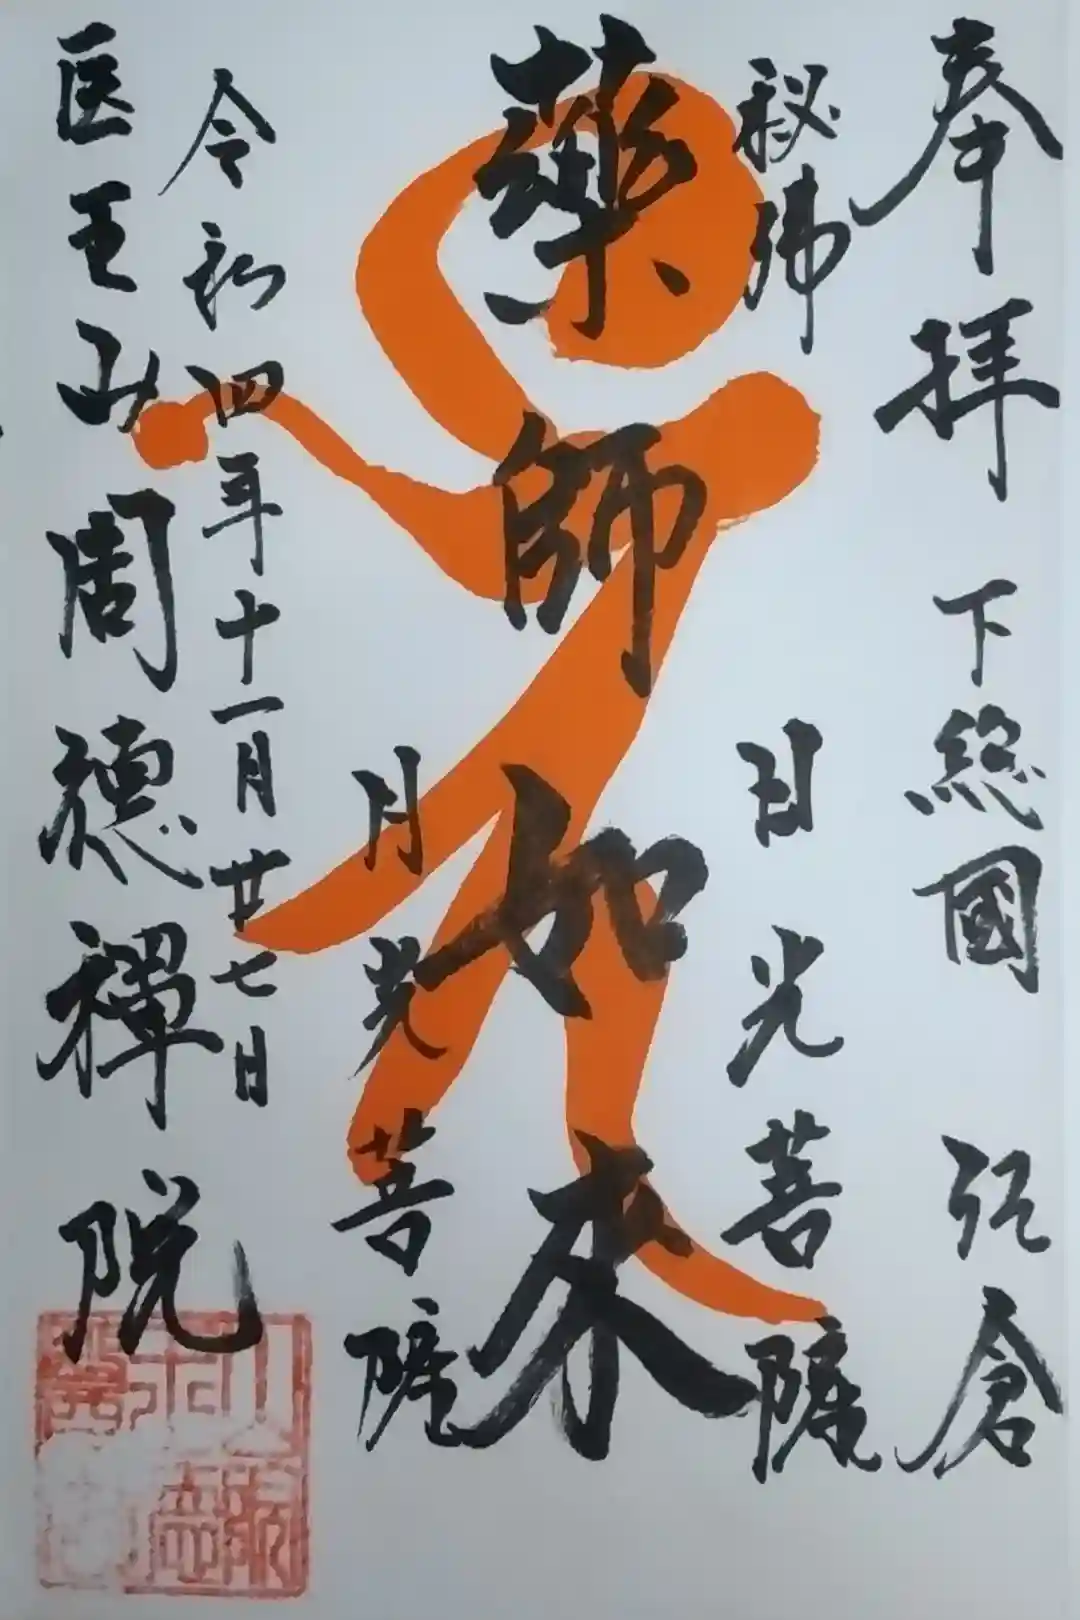 奉拝 下総國 弘倉
秘佛 日光菩薩
薬師如来
月光菩薩
令和四年十一月廿七日
医王山周徳禅院